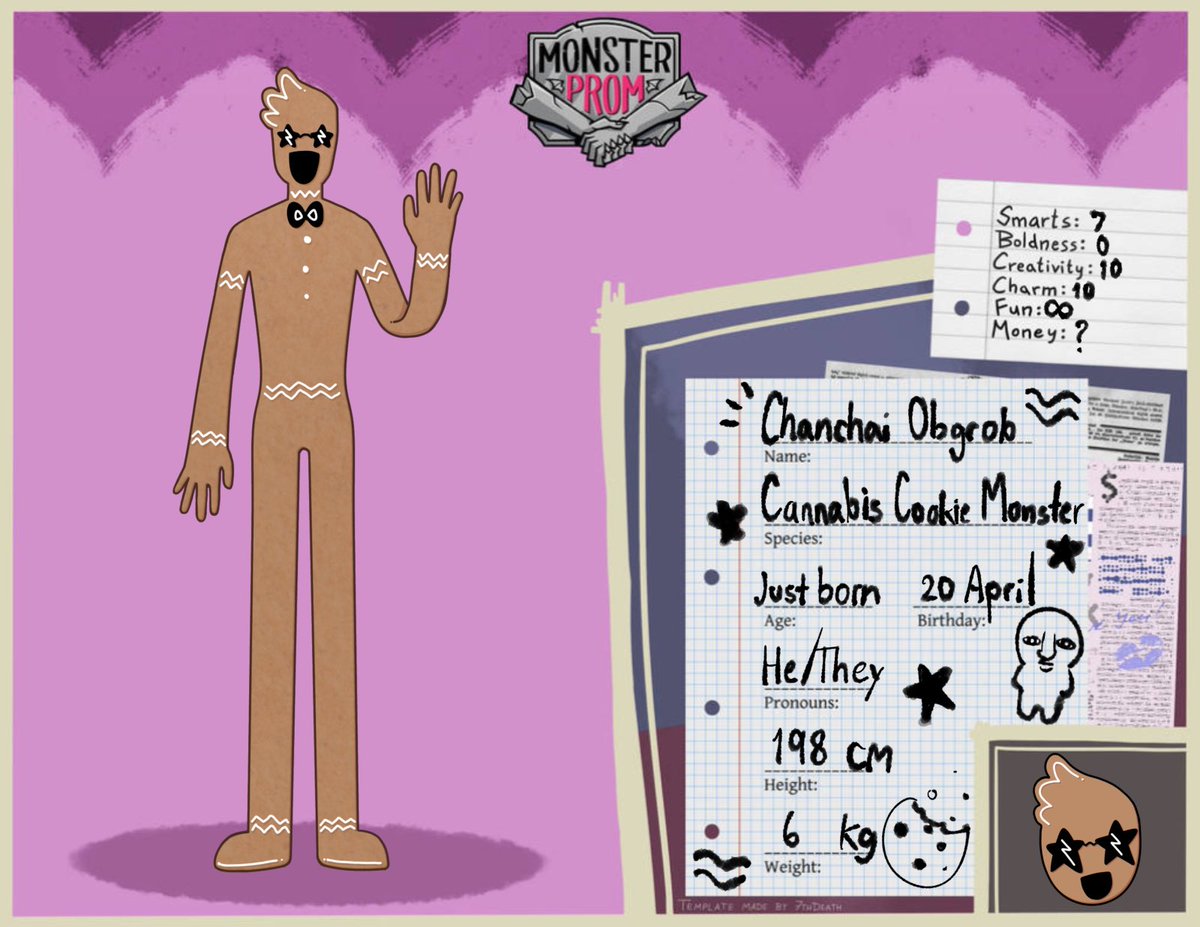 MONSTER
PROM
Smarts: 7
Boldness: 0
Creativity: 10
Charm: 10
Fun: ∞
Money: ?
Chanchai Obgrob
Name:
Cannabis Cookie Monster
Species:
Just born 20 April
Age: Birthday:
He/They
Pronouns:
198 cm
Height:
6 kg
Weight:
$
TEMPLATE MADE BY 7THDEATH